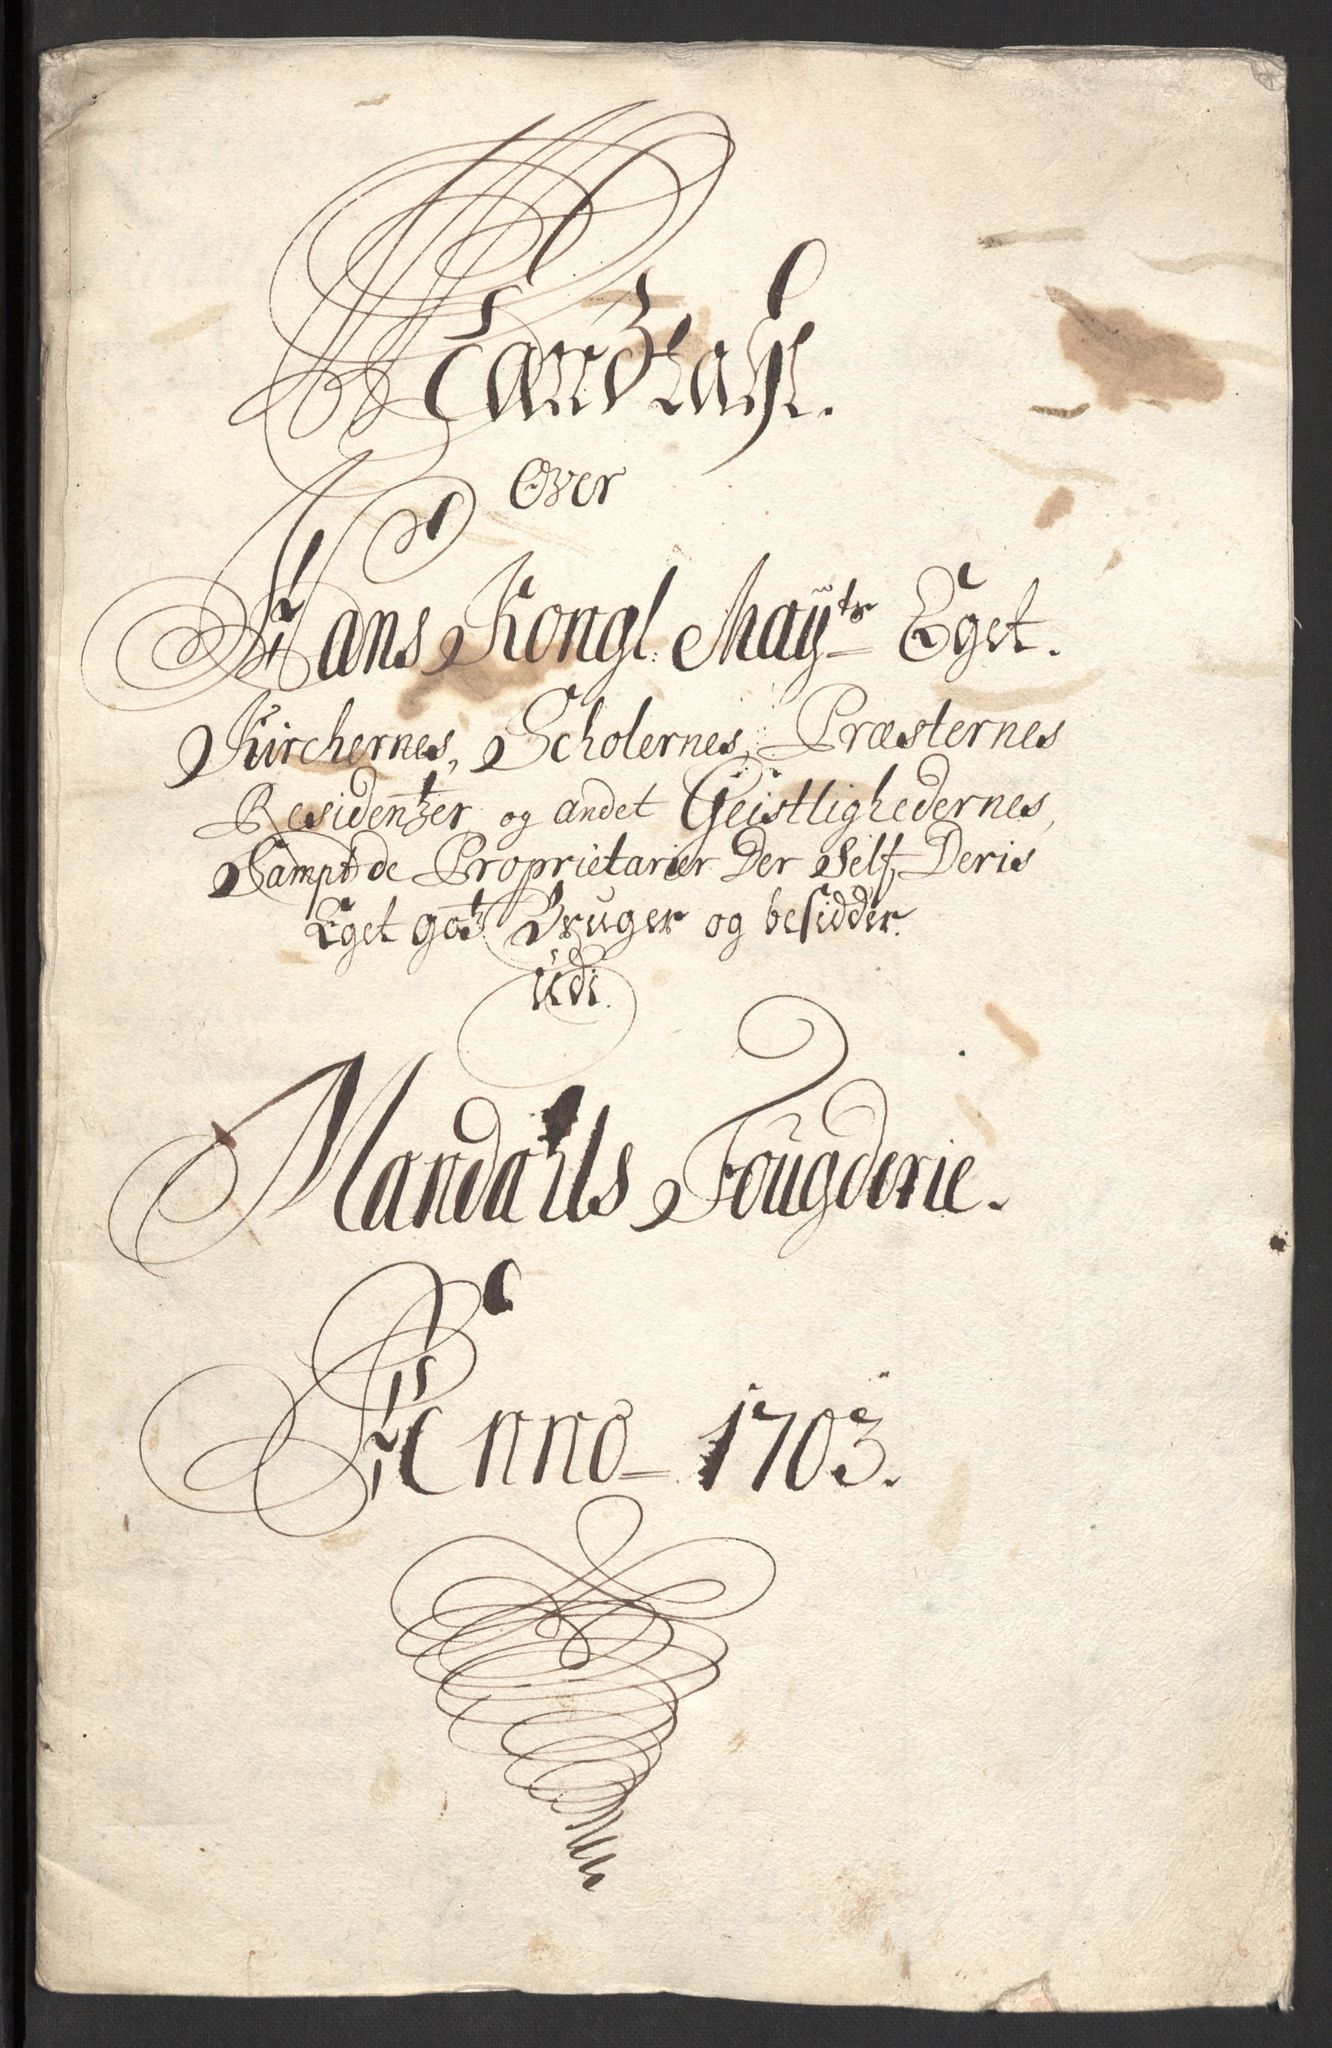 Mandtahl.
Over
Hans Kongl. Mayts Eget.
Kirchernes, Scholernes, Præsternes
Residentzer og andet Geistlighedernes,
Sampt de Proprietarier Der Self Deris
Eget gotz Bruger og besidder.
Udi.
Mandahls Fougderie.
Anno 1703.